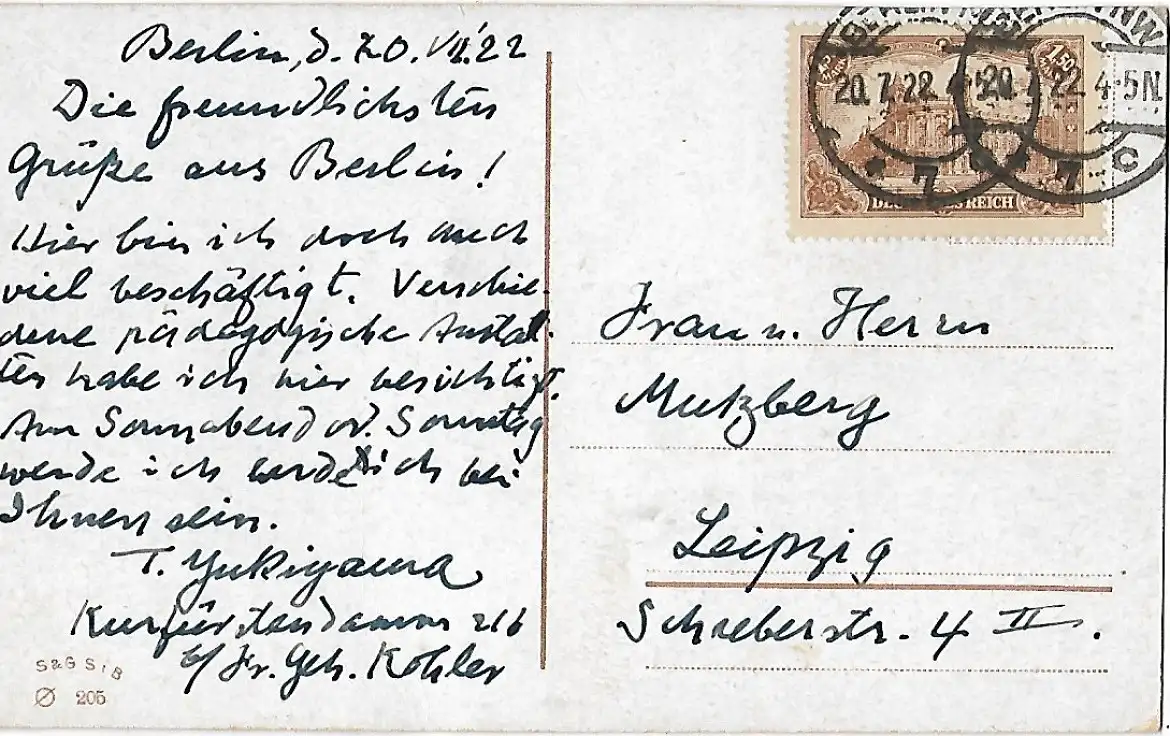 Berlin, d. 20. VII. 22
Die freundlichsten
Grüße aus Berlin!
Hier bin ich doch auch
viel beschäftigt. Verschie-
dene pädagogische Anstal-
ten habe ich hier besichtigt.
Am Sonnabend od. Sonntag
werde ich bei
Ihnen sein.
T. Yukiyama
Kurfürstendamm 216
b/ Fr. Geh. Kohler
S&G S i B
205
BERLIN NW
20.7.22 4-5N.
20.7.22 4-5N.
* 7 c
1,50
DEUTSCHES REICH
Frau u. Herrn
Mutzberg
Leipzig
Schreberstr. 4 II.